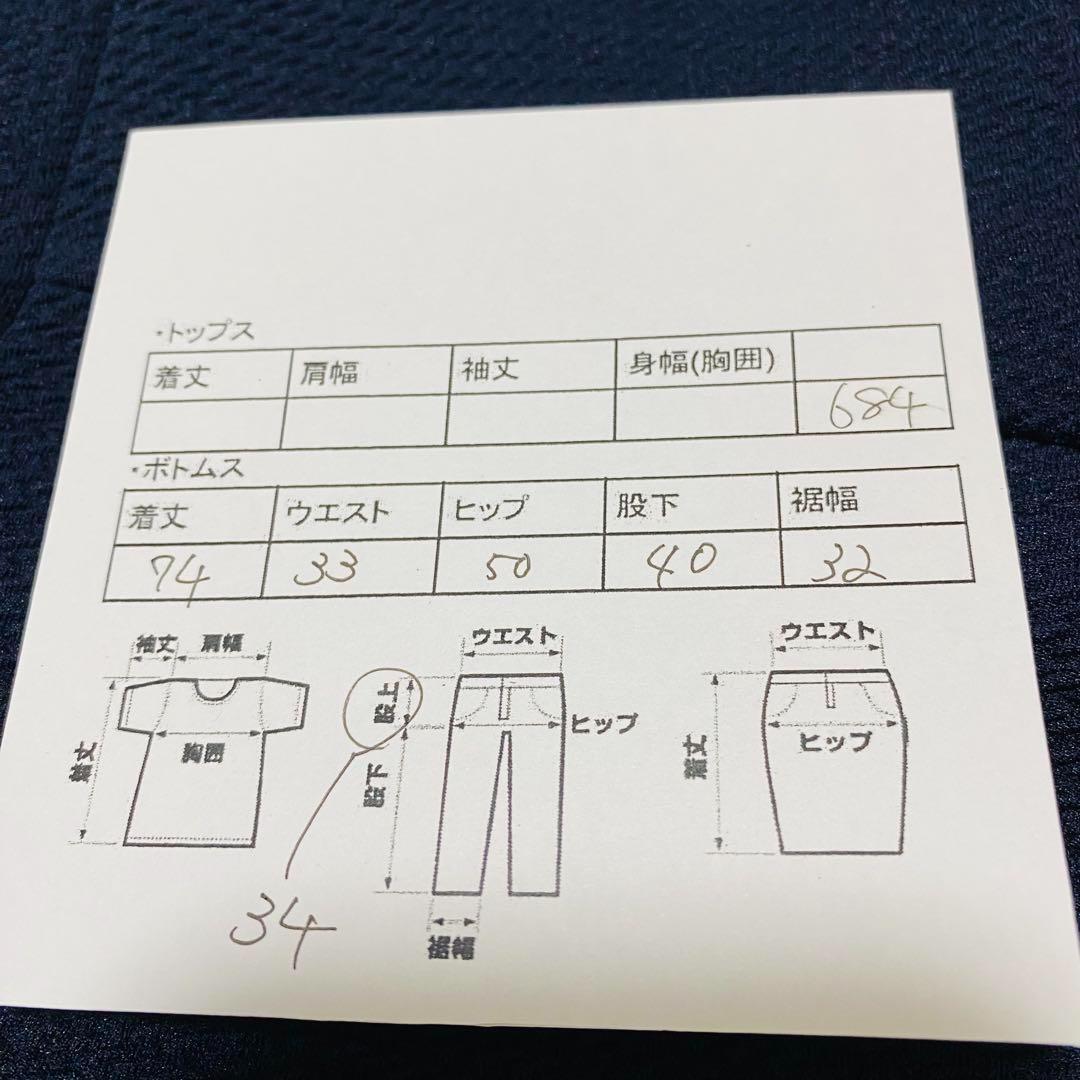 ・トップス
着丈 肩幅 袖丈 身幅(胸囲)
684
・ボトムス
着丈 ウエスト ヒップ 股下 裾幅
74 33 50 40 32
袖丈 肩幅
着丈
胸囲
ウエスト
股上
ヒップ
股下
裾幅
34
ウエスト
ヒップ
着丈